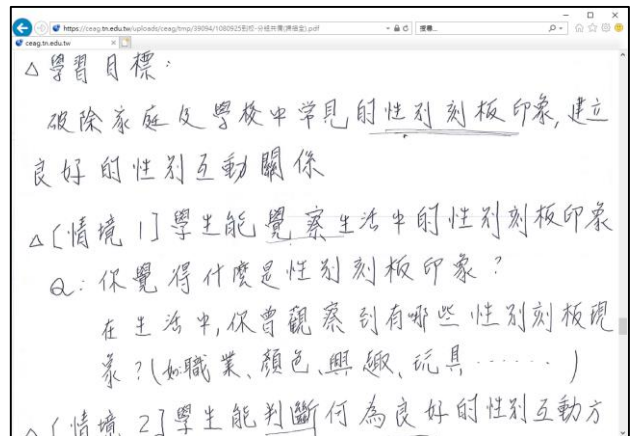 https://ceag.tn.edu.tw/uploads/ceag/tmp/39094/1080925到校-分組共備(課提室).pdf
搜尋...
ceag.tn.edu.tw
△學習目標：
破除家庭及學校中常見的性別刻板印象,建立
良好的性別互動關係
△[情境1]學生能覺察生活中的性別刻板印象
Q：你覺得什麼是性別刻板印象？
在生活中,你曾觀察到有哪些性別刻板現
象？(如職業、顏色、興趣、玩具……)
△[情境2]學生能判斷何為良好的性別互動方